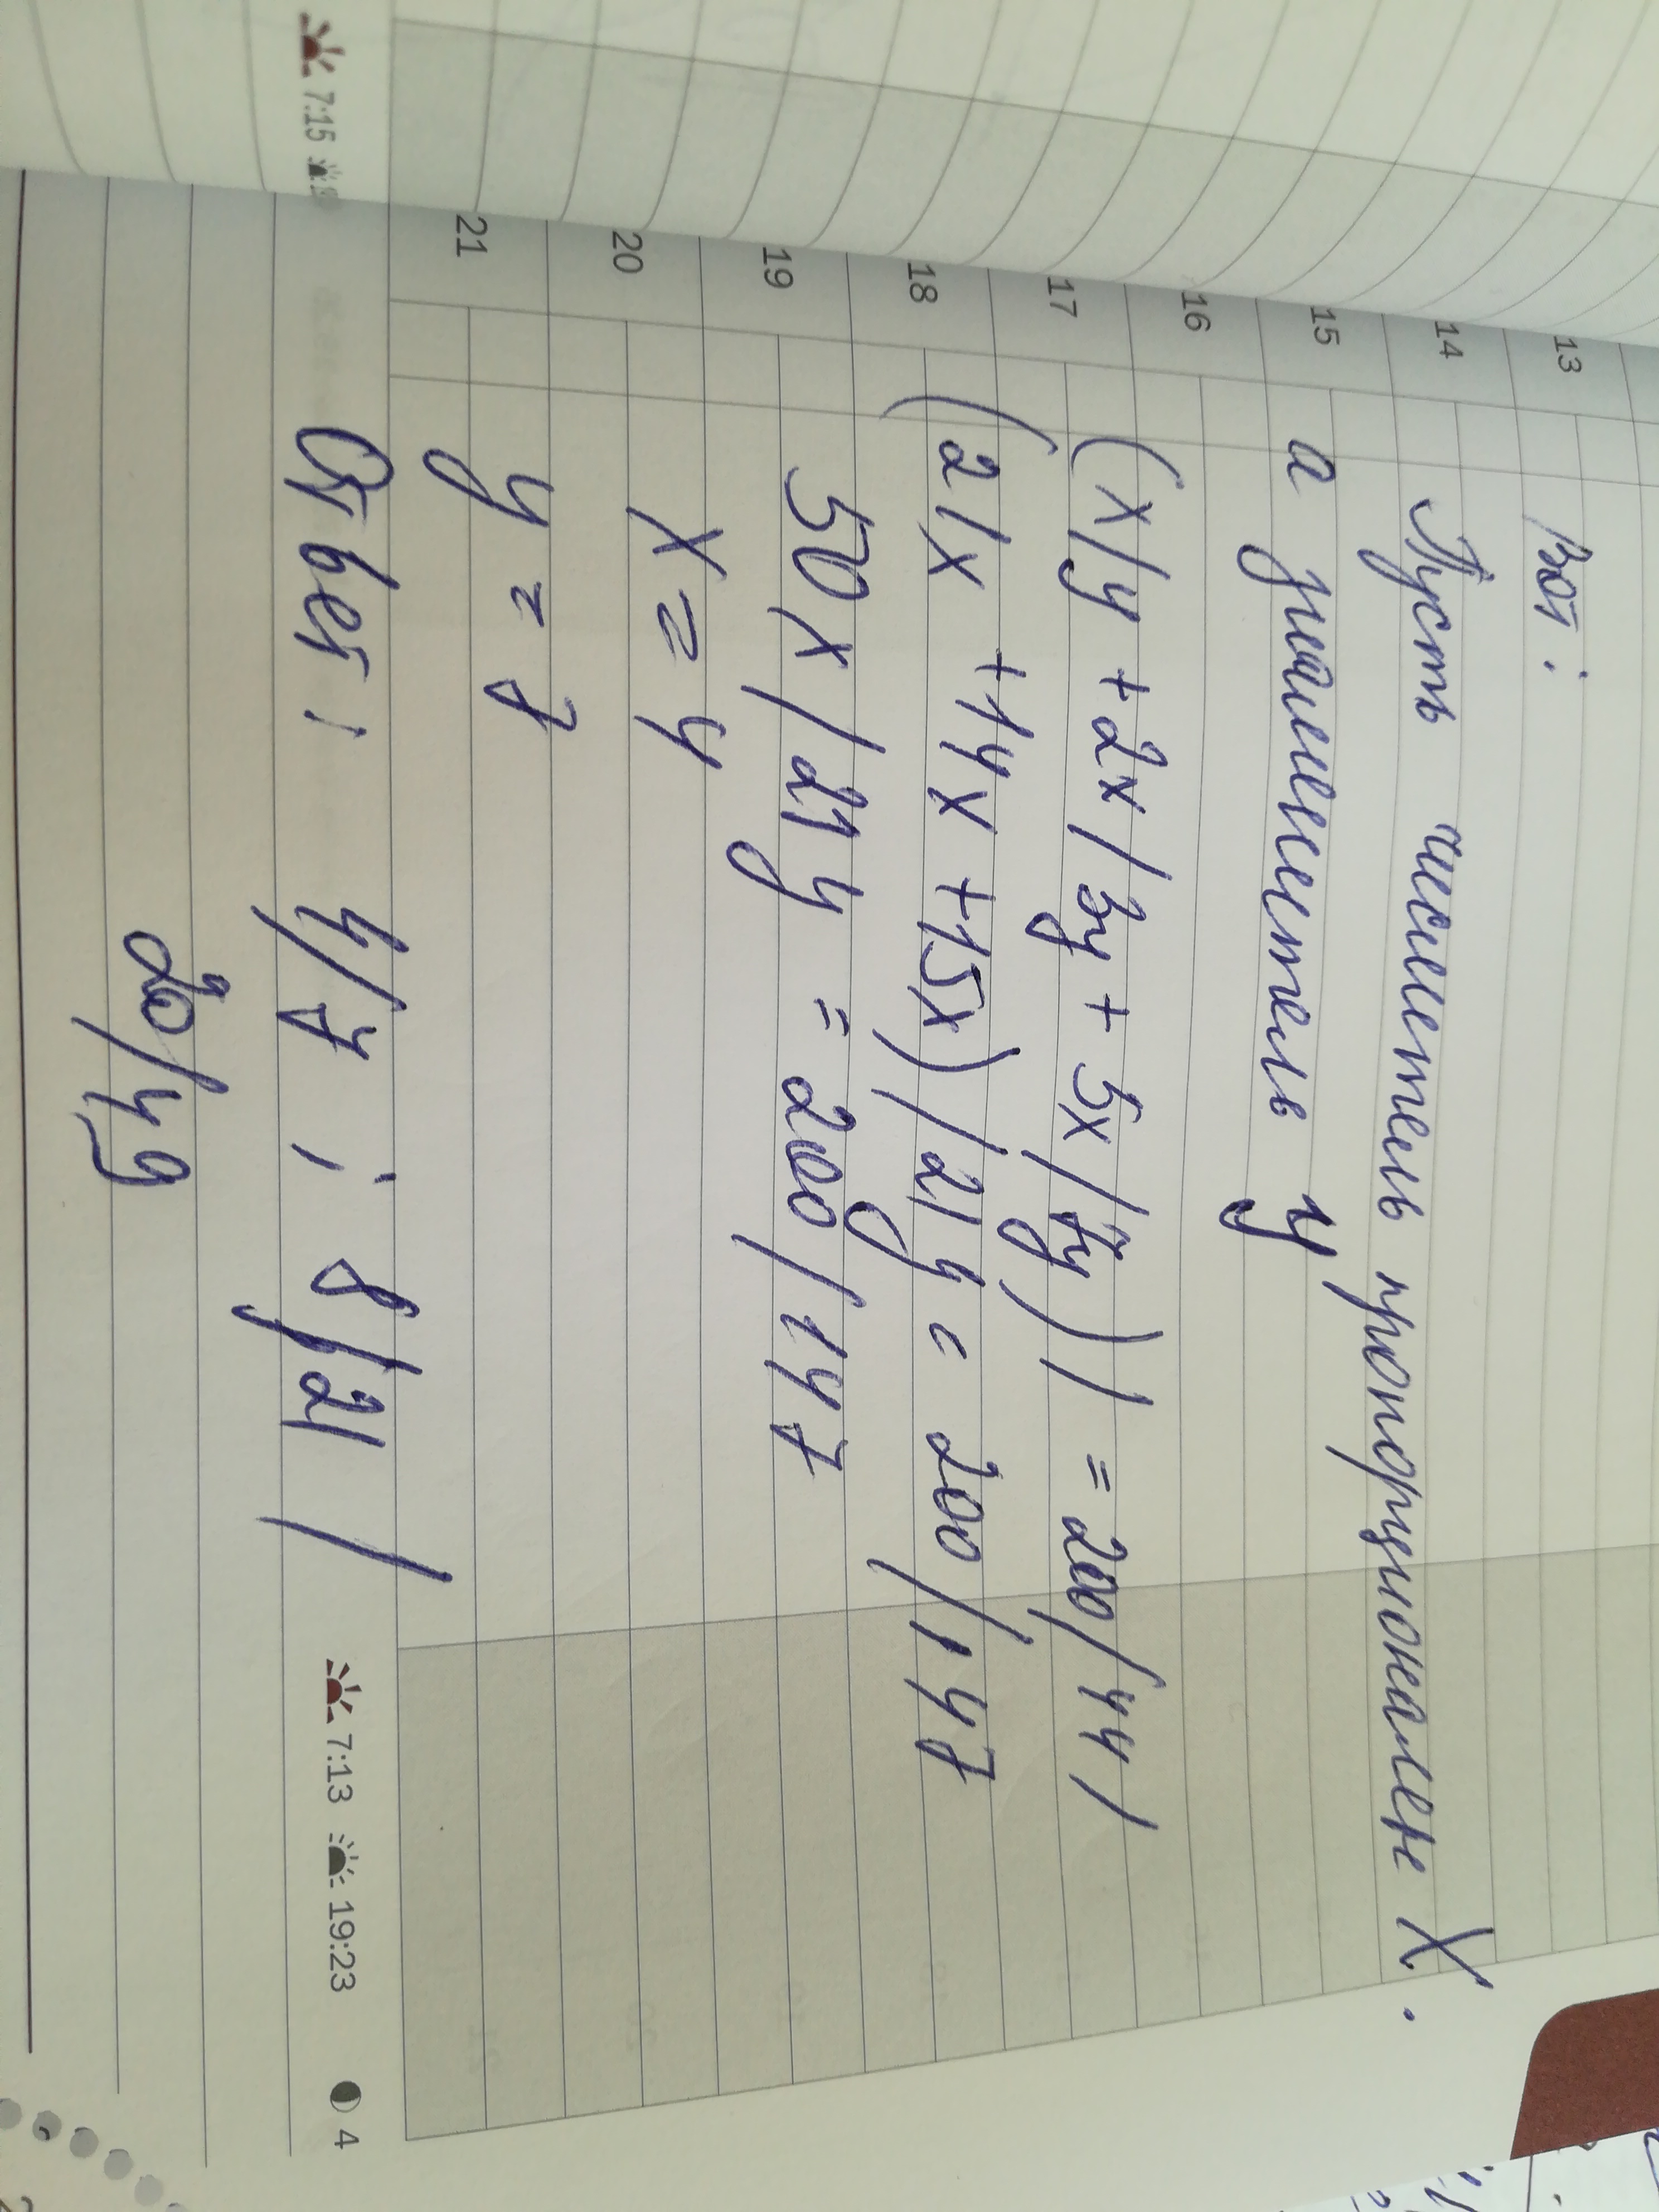 13
14
15
16
17
18
19
20
21
Вот:
Пусть числитель пропорционален X.
а знаменатель y
(x/y + 2x/3y + 5x/7y)) = 200/44)
(21x + 14x + 15x)/21y = 200/147
50x/21y = 200/147
x = 4
y = 7
Ответ: 4/7; 8/21/
20/49
7:15
7:13 19:23 4